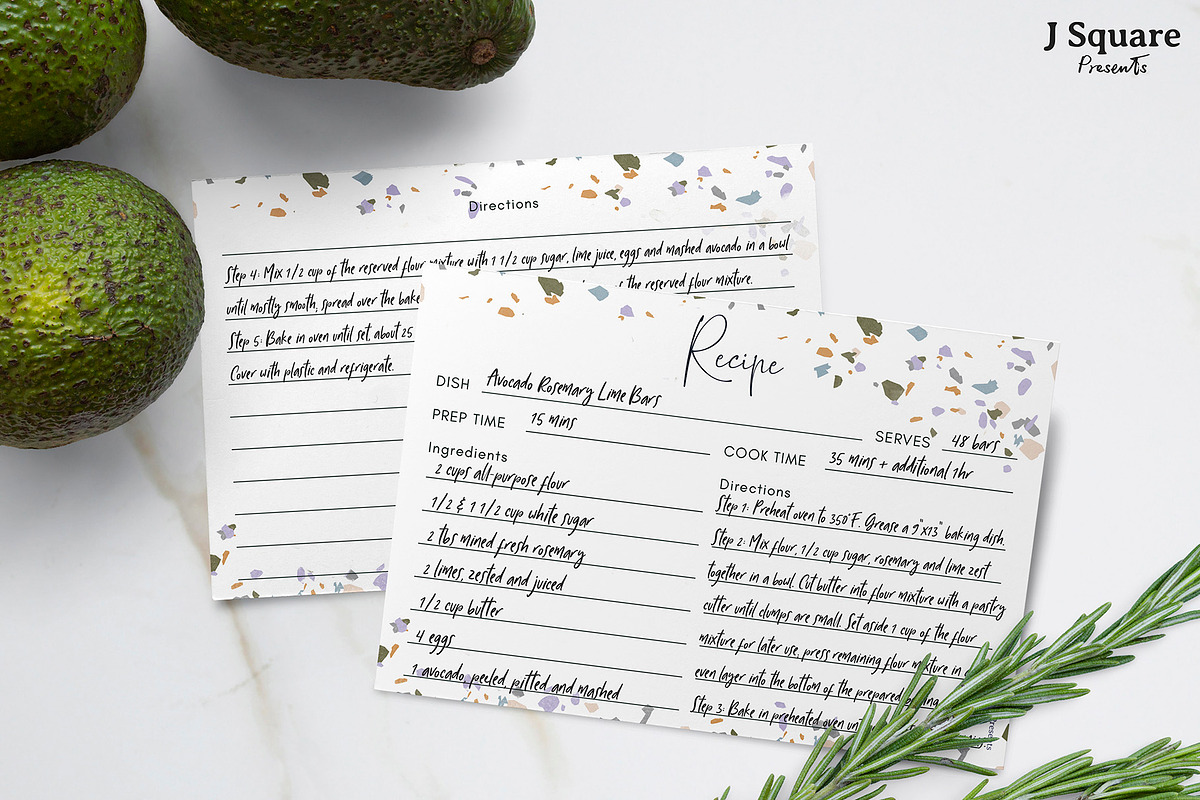 J Square
Presents
Directions
Step 4: Mix 1/2 cup of the reserved flour mixture with 1 1/2 cup sugar, lime juice, eggs and mashed avocado in a bowl
until mostly smooth, spread over the bake the reserved flour mixture.
Step 5: Bake in oven until set about 25
Cover with plastic and refrigerate.
Recipe
DISH Avocado Rosemary Lime Bars
SERVES 48 bars
PREP TIME 15 mins
COOK TIME 35 mins + additional 1hr
Ingredients
2 cups all-purpose flour
1/2 & 1 1/2 cup white sugar
2 tbs mined fresh rosemary
2 limes, zested and juiced
1/2 cup butter
4 eggs
1 avocado, peeled pitted and mashed
Directions
Step 1: Preheat oven to 350°F. Grease a 9"x13" baking dish.
Step 2: Mix flour, 1/2 cup sugar, rosemary and lime zest
together in a bowl. Cut butter into flour mixture with a pastry
cutter until clumps are small. Set aside 1 cup of the flour
mixture for later use, press remaining flour mixture in
even layer into the bottom of the prepared
Step 3: Bake in preheated oven